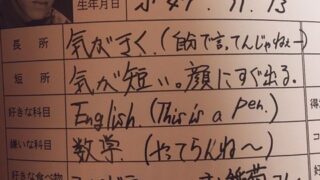 生年月日
長所 気がきく。(自分で言ってんじゃねぇー)
短所 気が短い。顔にすぐ出る。
好きな科目 English. (This is a pen.)
嫌いな科目 数学 (やってらんね~)
好きな食べ物